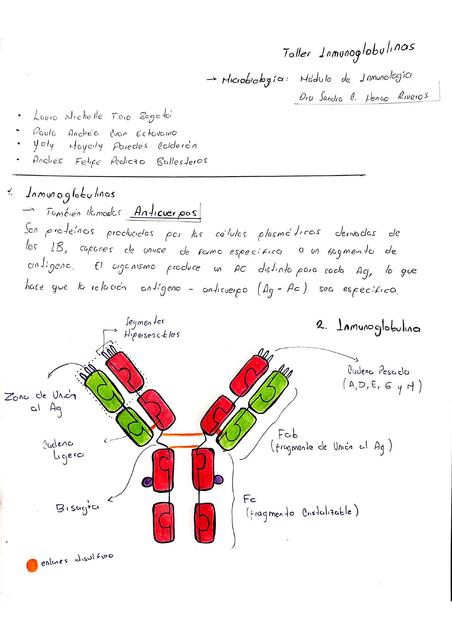 Taller Inmunoglobulinas
→ Microbiología: Módulo de Inmunología
Dra Sandra C. Henao Riveros
• Laura Michelle Toro Bogotá
• Paula Andrea
• Yoly Mayerly Paredes Calderón
• Andres Felipe Pedraza Ballesteros
1. Inmunoglobulinas
→ También llamadas Anticuerpos
Son proteínas producidas por las células plasmáticas derivadas de
los LB, capaces de unirse de forma específica a un fragmento de
antígeno. El organismo produce un AC distinto para cada Ag, lo que
hace que la relación antígeno - anticuerpo (Ag - Ac) sea específica.
2. Inmunoglobulina
Segmentos
Hipervariables
Zona de Unión
al Ag
Cadena
ligera
Bisagra
Cadena Pesada
(A, D, E, G y M)
Fab
(fragmento de Unión al Ag)
Fc
(fragmento Cristalizable)
enlaces disulfuro